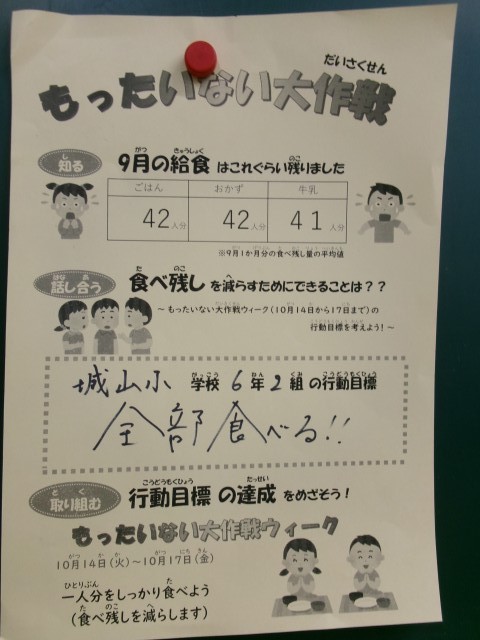 もったいない大作戦
知る 9月の給食はこれぐらい残りました
ごはん おかず 牛乳
42人分 42人分 41人分
※9月1か月分の食べ残し量の平均値
話し合う 食べ残しを減らすためにできることは？？
～もったいない大作戦ウィーク（10月14日から17日まで）の
行動目標を考えよう！～
城山小 学校 6年2組の行動目標
全部食べる!!
取り組む 行動目標の達成をめざそう！
もったいない大作戦ウィーク
10月14日（火）～10月17日（金）
一人分をしっかり食べよう
（食べ残しを減らします）